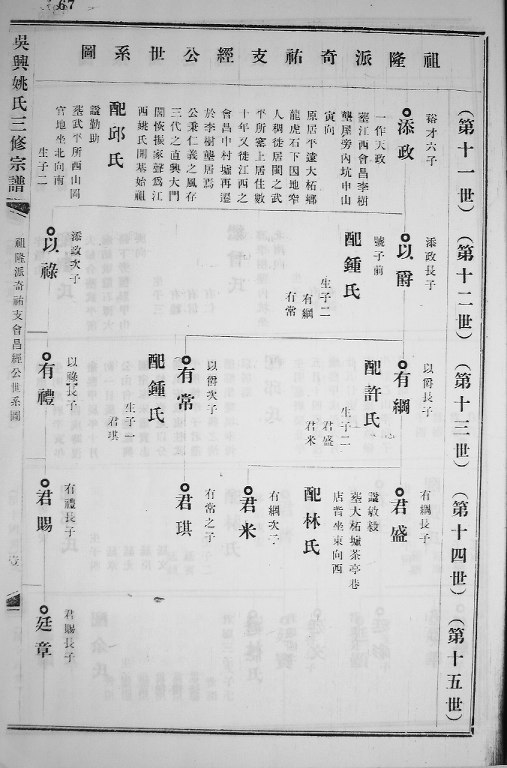 67
祖隆派奇祐支經公世系圖
吳興姚氏三修宗譜
祖隆派奇祐支會昌經公世系圖
(第十一世)
(第十二世)
(第十三世)
(第十四世)
(第十五世)
裕才六子
添政
一作天政
墓江西會昌李樹
壟屋旁內坑申山
寅向
原居平遠大柘鄉
龍虎石下因地窄
人稠徙居閩之武
平所寨上居住數
十年又徙江西之
會昌中村壩再遷
於李樹壟居焉
公秉仁義之風存
三代之直興大門
閭恢振家聲爲江
西姚氏開基始祖
配邱氏
諡勤助
墓武平所西山岡
官地坐北向南
生子二
添政長子
以爵
號子前
配鍾氏
生子二
有綱
有常
添政次子
以祿
以爵長子
有綱
配許氏
生子二
君盛
君米
以爵次子
有常
配鍾氏
生子一
君琪
以祿長子
有禮
有綱長子
君盛
諡敏毅
墓大柘墟茶亭巷
店背坐東向西
配林氏
有綱次子
君米
有常之子
君琪
有禮長子
君賜
君賜長子
廷章